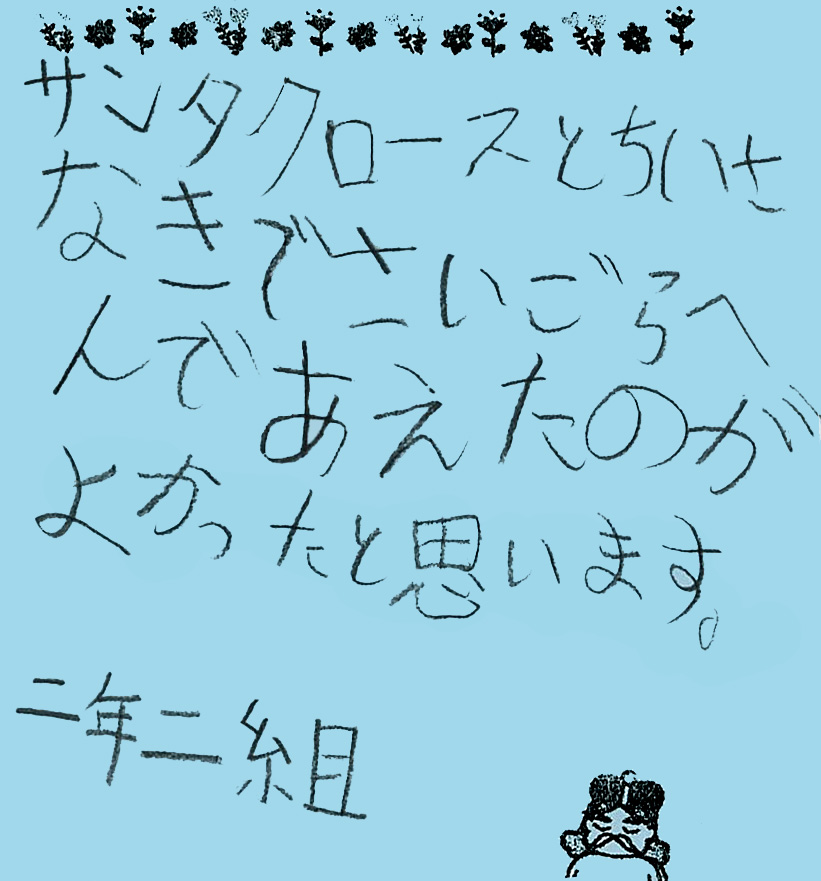 サンタクロースとちいさ
なきでさいごろへ
んであえたのが
よかったと思います。
二年二組